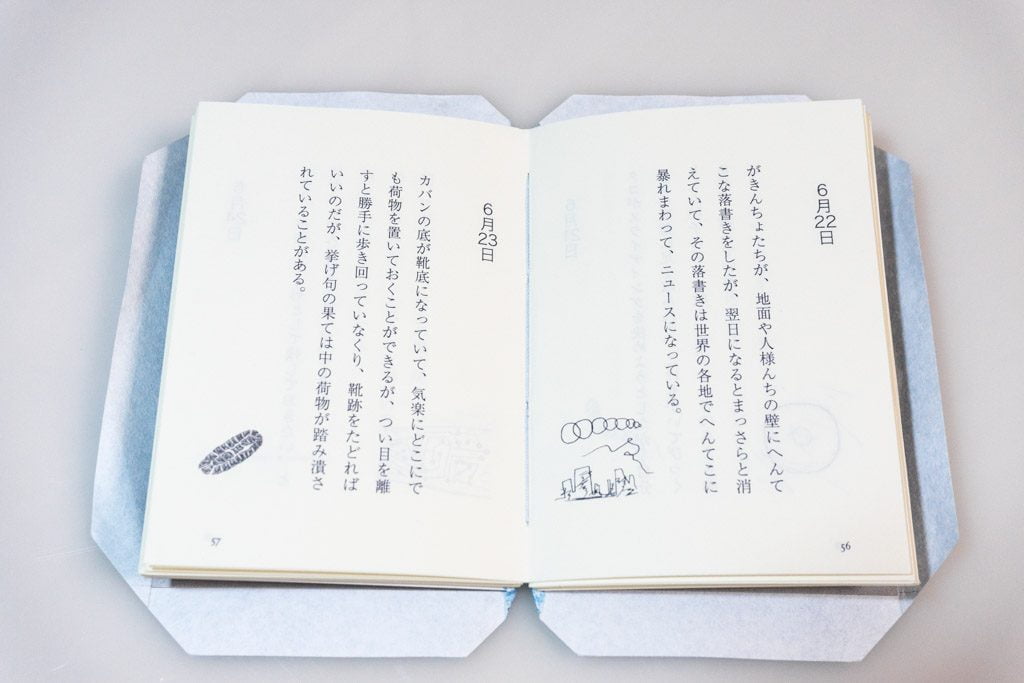 6月22日
がきんちょたちが、地面や人様んちの壁にへんて
こな落書きをしたが、翌日になるとまっさらと消
えていて、その落書きは世界の各地でへんてこに
暴れまわって、ニュースになっている。
56
6月23日
カバンの底が靴底になっていて、気楽にどこにで
も荷物を置いておくことができるが、つい目を離
すと勝手に歩き回っていなくり、靴跡をたどれば
いいのだが、挙げ句の果ては中の荷物が踏み潰さ
れていることがある。
57